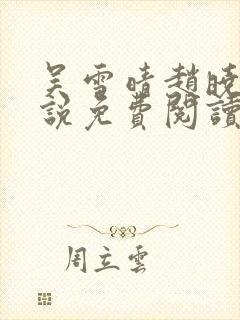 吴雪晴趙晓
說免費閱讀
周立雲